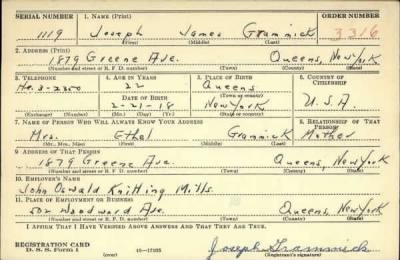 SERIAL NUMBER 1. NAME (Print) ORDER NUMBER
1119 Joseph James Grammick 3316
(First) (Middle) (Last)
2. ADDRESS (Print)
1879 Greene Ave. Queens, New York
(Number and street or R. F. D. number) (Town) (County) (State)
3. TELEPHONE 4. AGE IN YEARS 5. PLACE OF BIRTH 6. COUNTRY OF CITIZENSHIP
22 Queens
(Town or county)
DATE OF BIRTH
2-21-18 New York U.S.A.
(Exchange) (Number) (Mo.) (Day) (Yr.) (State or country)
7. NAME OF PERSON WHO WILL ALWAYS KNOW YOUR ADDRESS 8. RELATIONSHIP OF THAT PERSON
Mrs. Ethel Grammick Mother
(Mr., Mrs., Miss) (First) (Middle) (Last)
9. ADDRESS OF THAT PERSON
1879 Greene Ave. Queens, New York
(Number and street or R. F. D. number) (Town) (County) (State)
10. EMPLOYER'S NAME
John Oswald Knitting Mills.
11. PLACE OF EMPLOYMENT OR BUSINESS
502 Woodward Ave. Queens, New York
(Number and street or R. F. D. number) (Town) (County) (State)
I AFFIRM THAT I HAVE VERIFIED ABOVE ANSWERS AND THAT THEY ARE TRUE.
REGISTRATION CARD
D. S. S. Form 1 (over) 16—17105 Joseph Grammick
(Registrant's signature)